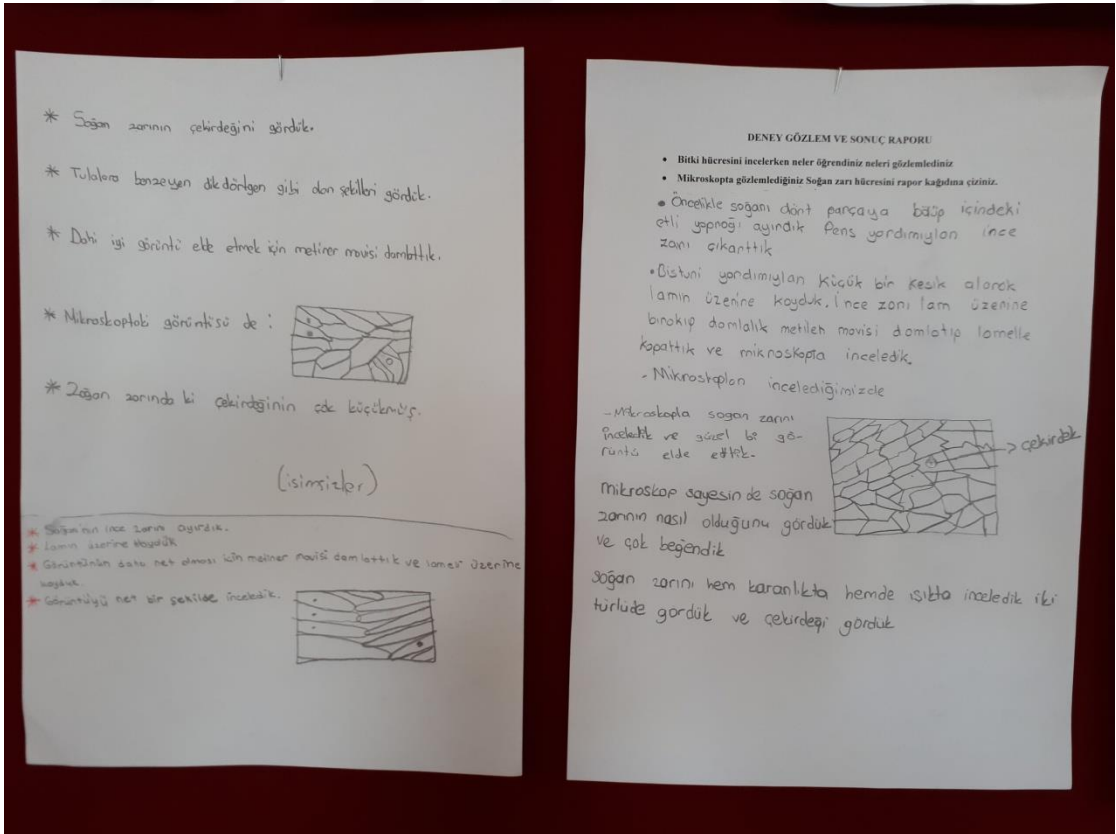 * Soğan zarının çekirdeğini gördük.
* Tulalara benzeyen dikdörtgen gibi olan şekilleri gördük.
* Dahi iyi görüntü elde etmek için metiner mavisi damlattık.
* Mikroskoptaki görüntüsü de :
* Zoğan zarında ki çekirdeğinin çok küçükmüş.
(isimsizler)
* Soğanın ince zarını ayırdık.
* Lamın üzerine koyduk
* Görüntünün daha net olması için metiner mavisi damlattık ve lameli üzerine
koyduk.
* Görüntüyü net bir şekilde inceledik.
DENEY GÖZLEM VE SONUÇ RAPORU
• Bitki hücresini incelerken neler öğrendiniz neleri gözlemlediniz
• Mikroskopta gözlemlediğiniz Soğan zarı hücresini rapor kağıdına çiziniz.
• Öncelikle soğanı dört parçaya bölüp içindeki
etli yaprağı ayırdık Pens yardımıylan ince
zarı çıkarttık
• Bisturi yardımıylan küçük bir kesik alarak
lamın üzerine koyduk. İnce zarı lam üzerine
bırakıp damlalık metilen mavisi damlatıp lamelle
kapattık ve mikroskopta inceledik.
- Mikroskoplan incelediğimizde
- Mikroskopla soğan zarını
inceledik ve güzel bi gö-
rüntü elde ettik.
çekirdek
mikroskop sayesin de soğan
zarının nasıl olduğunu gördük
ve çok beğendik
soğan zarını hem karanlıkta hemde ışıkta inceledik iki
türlüde gördük ve çekirdeği gördük